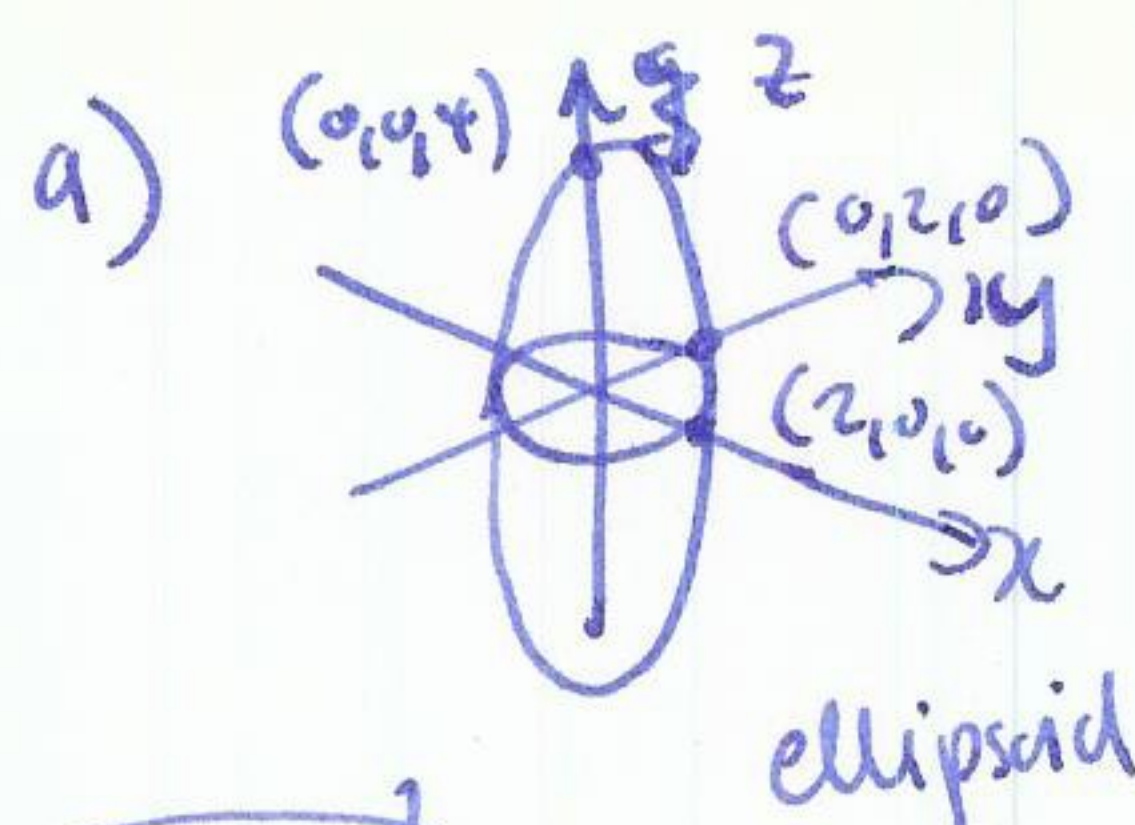 a)
(0,0,4) z
(0,2,0)
y
(2,0,0)
x
ellipsoid